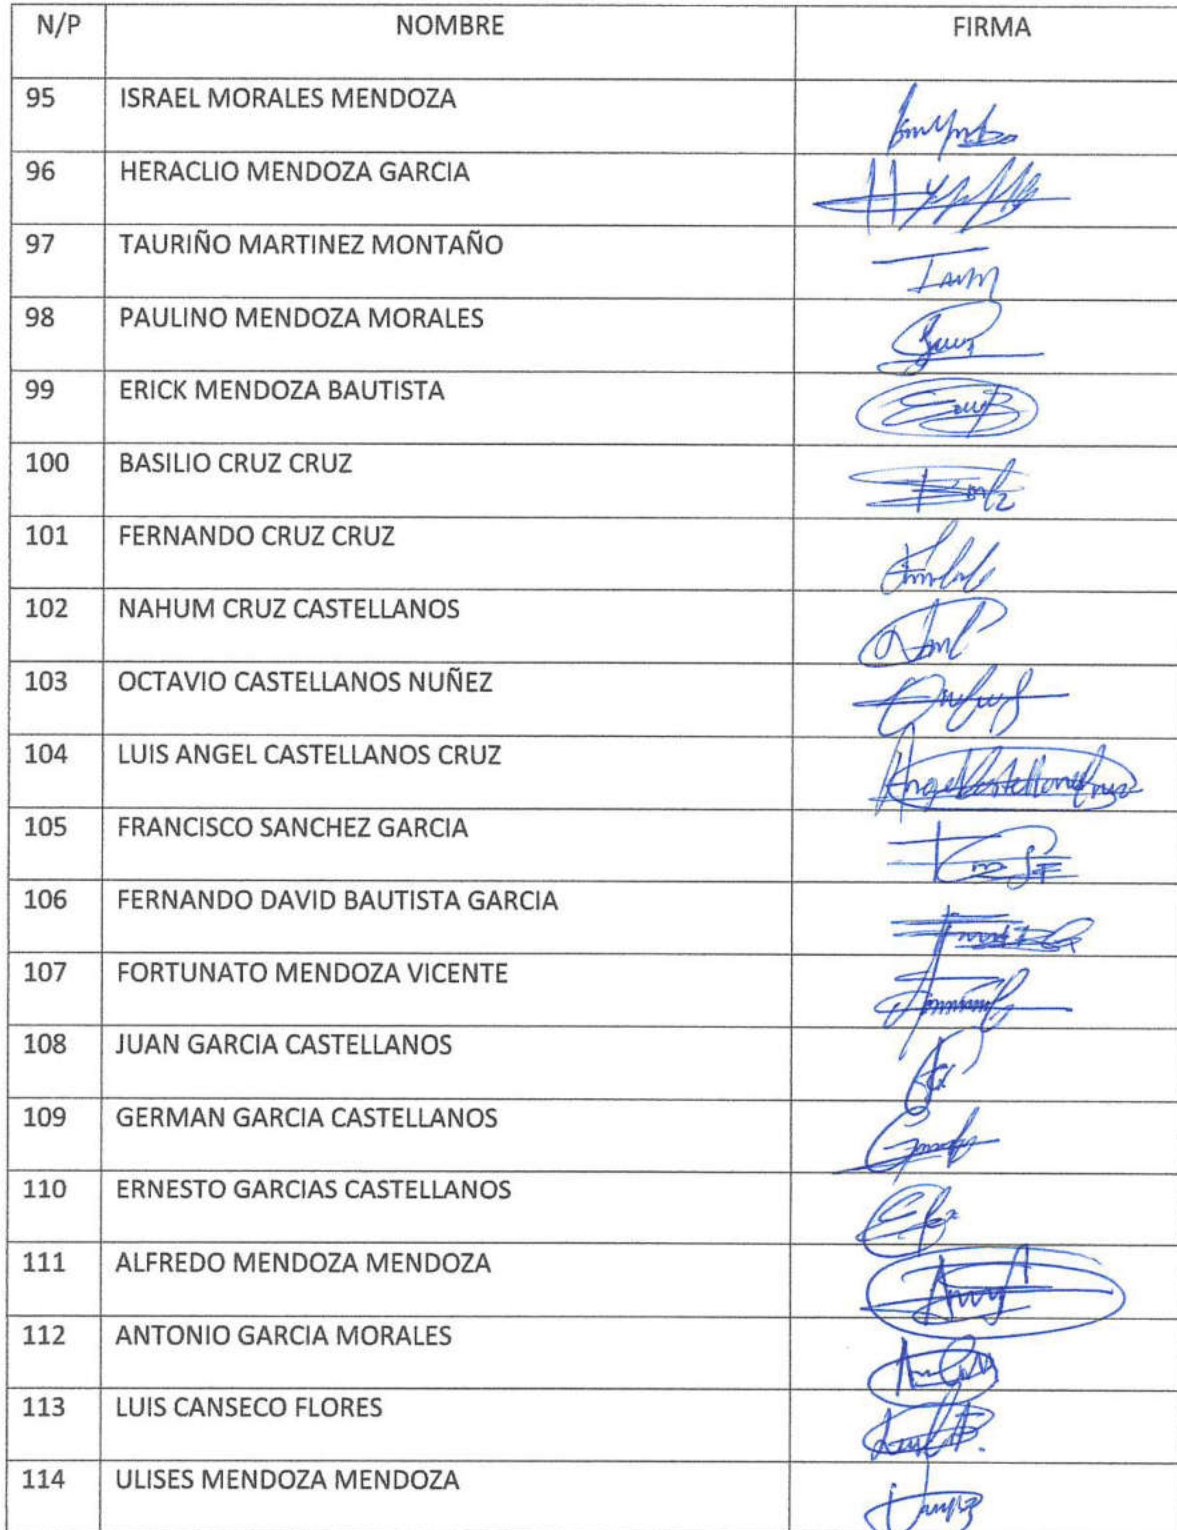 N/P NOMBRE FIRMA
95 ISRAEL MORALES MENDOZA
96 HERACLIO MENDOZA GARCIA
97 TAURIÑO MARTINEZ MONTAÑO
98 PAULINO MENDOZA MORALES
99 ERICK MENDOZA BAUTISTA
100 BASILIO CRUZ CRUZ
101 FERNANDO CRUZ CRUZ
102 NAHUM CRUZ CASTELLANOS
103 OCTAVIO CASTELLANOS NUÑEZ
104 LUIS ANGEL CASTELLANOS CRUZ
105 FRANCISCO SANCHEZ GARCIA
106 FERNANDO DAVID BAUTISTA GARCIA
107 FORTUNATO MENDOZA VICENTE
108 JUAN GARCIA CASTELLANOS
109 GERMAN GARCIA CASTELLANOS
110 ERNESTO GARCIAS CASTELLANOS
111 ALFREDO MENDOZA MENDOZA
112 ANTONIO GARCIA MORALES
113 LUIS CANSECO FLORES
114 ULISES MENDOZA MENDOZA